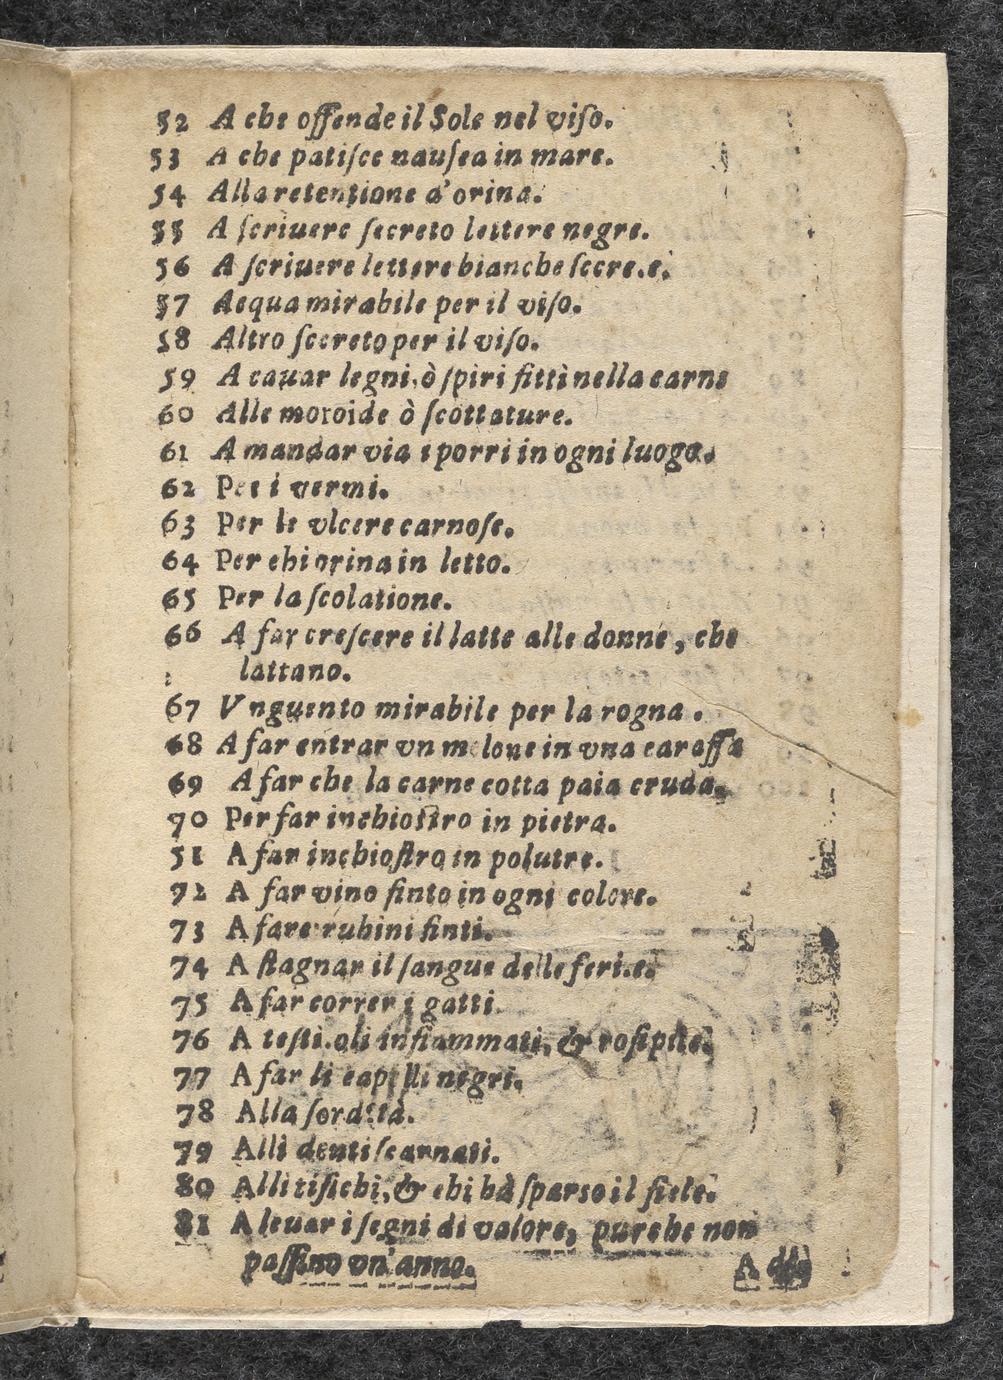 52 A che offende il Sole nel viſo.
53 A che patiſce nauſea in mare.
54 Alla retentione d'orina.
55 A ſcriuere ſecreto lettere negre.
56 A ſcriuere lettere bianche
57 Acqua mirabile per il viſo.
58 Altro ſecreto per il viſo.
59 A cauar legni, ò ſpiri fitti nella carne
60 Alle moroide ò ſcottature.
61 A mandar via i porri in ogni luogo.
62 Per i vermi.
63 Per le vlcere carnoſe.
64 Per chi orina in letto.
65 Per la ſcolatione.
66 A far creſcere il latte alle donne, che
lattano.
67 Vnguento mirabile per la rogna.
68 A far entrar vn melone in vna caraffa
69 A far che la carne cotta paia cruda.
70 Per far inchioſtro in pietra.
51 A far inchioſtro in polutre.
72 A far vino finto in ogni colore.
73 A fare rubini finti.
74 A ſtagnar il ſangue delle
75 A far correr i gatti.
76 A infiammati, &
77 A far li capelli negri.
78 Alla ſordità.
79 Alli denti ſcarnati.
80 Alli tiſichi, & chi hà ſparso il fiele.
81 A leuar i ſegni di valore, purche non
paſſino vn'anno.
A